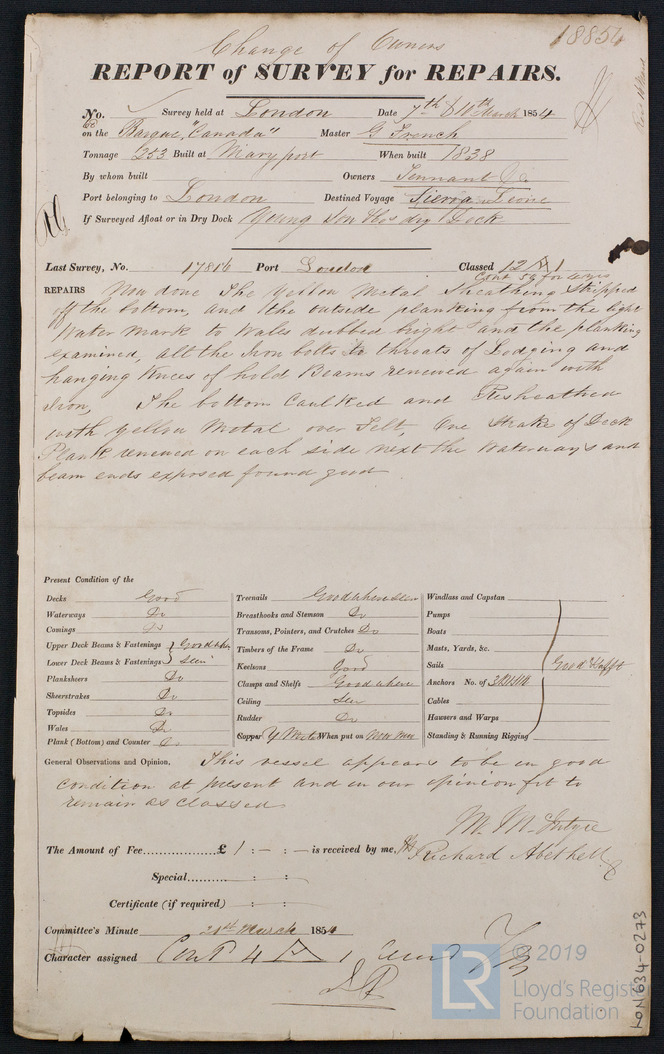 18854
Change of Owners
REPORT of SURVEY for REPAIRS.
No. Survey held at London Date 7th & 11th March 1854
on the Barque "Canada" Master G French
Tonnage 253 Built at Maryport When built 1838
By whom built Owners Tennant & Co
Port belonging to London Destined Voyage Sierra Leone
If Surveyed Afloat or in Dry Dock Young Son & Co's dry Dock
Last Survey, No. 17816 Port London Classed 12 A 1
Cont 54 for
REPAIRS Now done The Yellow Metal Sheathing Stripped
off the bottom, and the outside planking from the light
Water Mark to Wales dubbed bright and the planking
examined, all the Iron bolts to throats of Lodging and
hanging Knees of hold Beams renewed again with
Iron, The bottom Caulked and Resheathed
with Yellow Metal over Felt, One Strake of Deck
Plank renewed on each side next the Waterways and
beam ends exposed found good
Present Condition of the
Decks Good
Waterways Do
Comings Do
Upper Deck Beams & Fastenings } Good when
Lower Deck Beams & Fastenings } seen
Planksheers Do
Sheerstrakes Do
Topsides Do
Wales Do
Plank (Bottom) and Counter Do
Treenails Good where seen
Breasthooks and Stemson Do
Transoms, Pointers, and Crutches Do
Timbers of the Frame Do
Keelsons Good
Clamps and Shelfs Good where
Ceiling seen
Rudder Do
Copper Y Metal When put on Now new
Windlass and Capstan
Pumps
Boats
Masts, Yards, &c.
Sails Good
Anchors No. of 3
Cables
Hawsers and Warps
Standing & Running Rigging
General Observations and Opinion. This vessel appears to be in good
condition at present and in our opinion fit to
remain as classed.
M. McIntyre
The Amount of Fee £ 1 : - : - is received by me, Richard Abethell
Special : :
Certificate (if required) : :
Committee's Minute 21st March 1854
Character assigned Contd 4 A 1
LON 634-0273
LR
© 2019
Lloyd's Register
Foundation